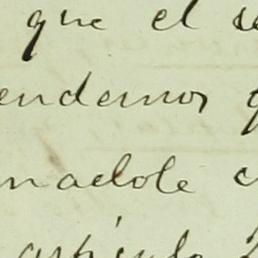 que el se
endemos q
nadole c
artículo